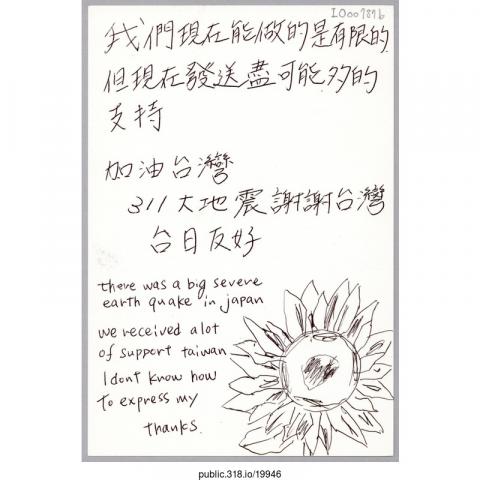 IO007876
我們現在能做的是有限的
但現在發送盡可能多的
支持
加油台灣
311大地震謝謝台灣
台日友好
there was a big severe
earth quake in japan
we received a lot
of support taiwan
I dont know how
to express my
thanks.
public.318.io/19946